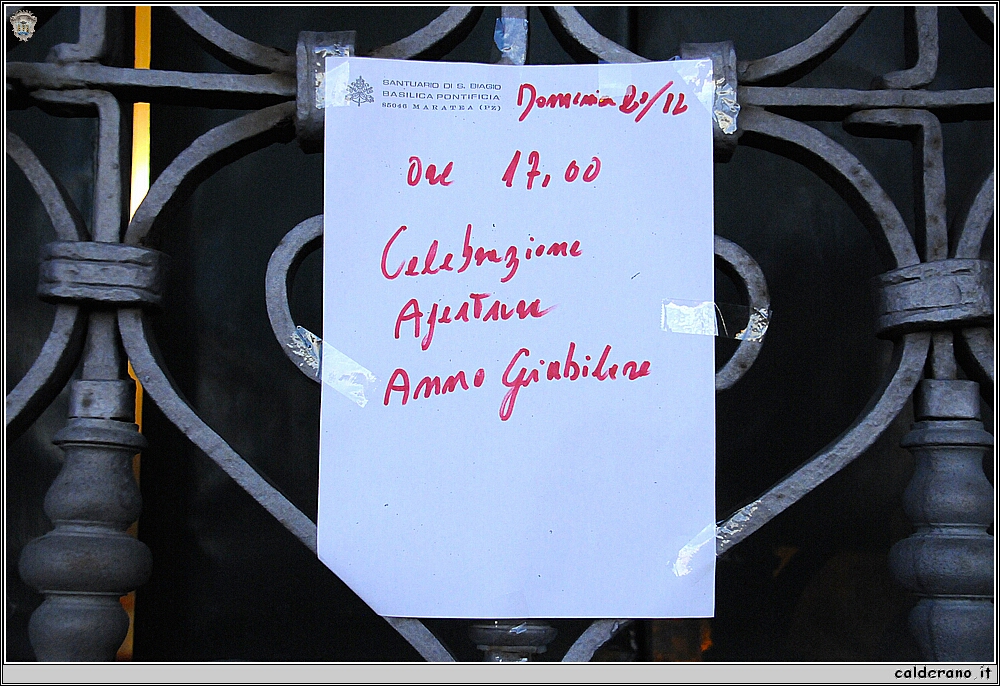 SANTUARIO DI S. BIAGIO
BASILICA PONTIFICIA
85046 MARATEA (PZ)
Domenica /12
Ore 17,00
Celebrazione
Apertura
Anno Giubilare
calderano.it